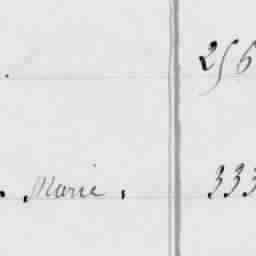 . 256
. Marie . 333